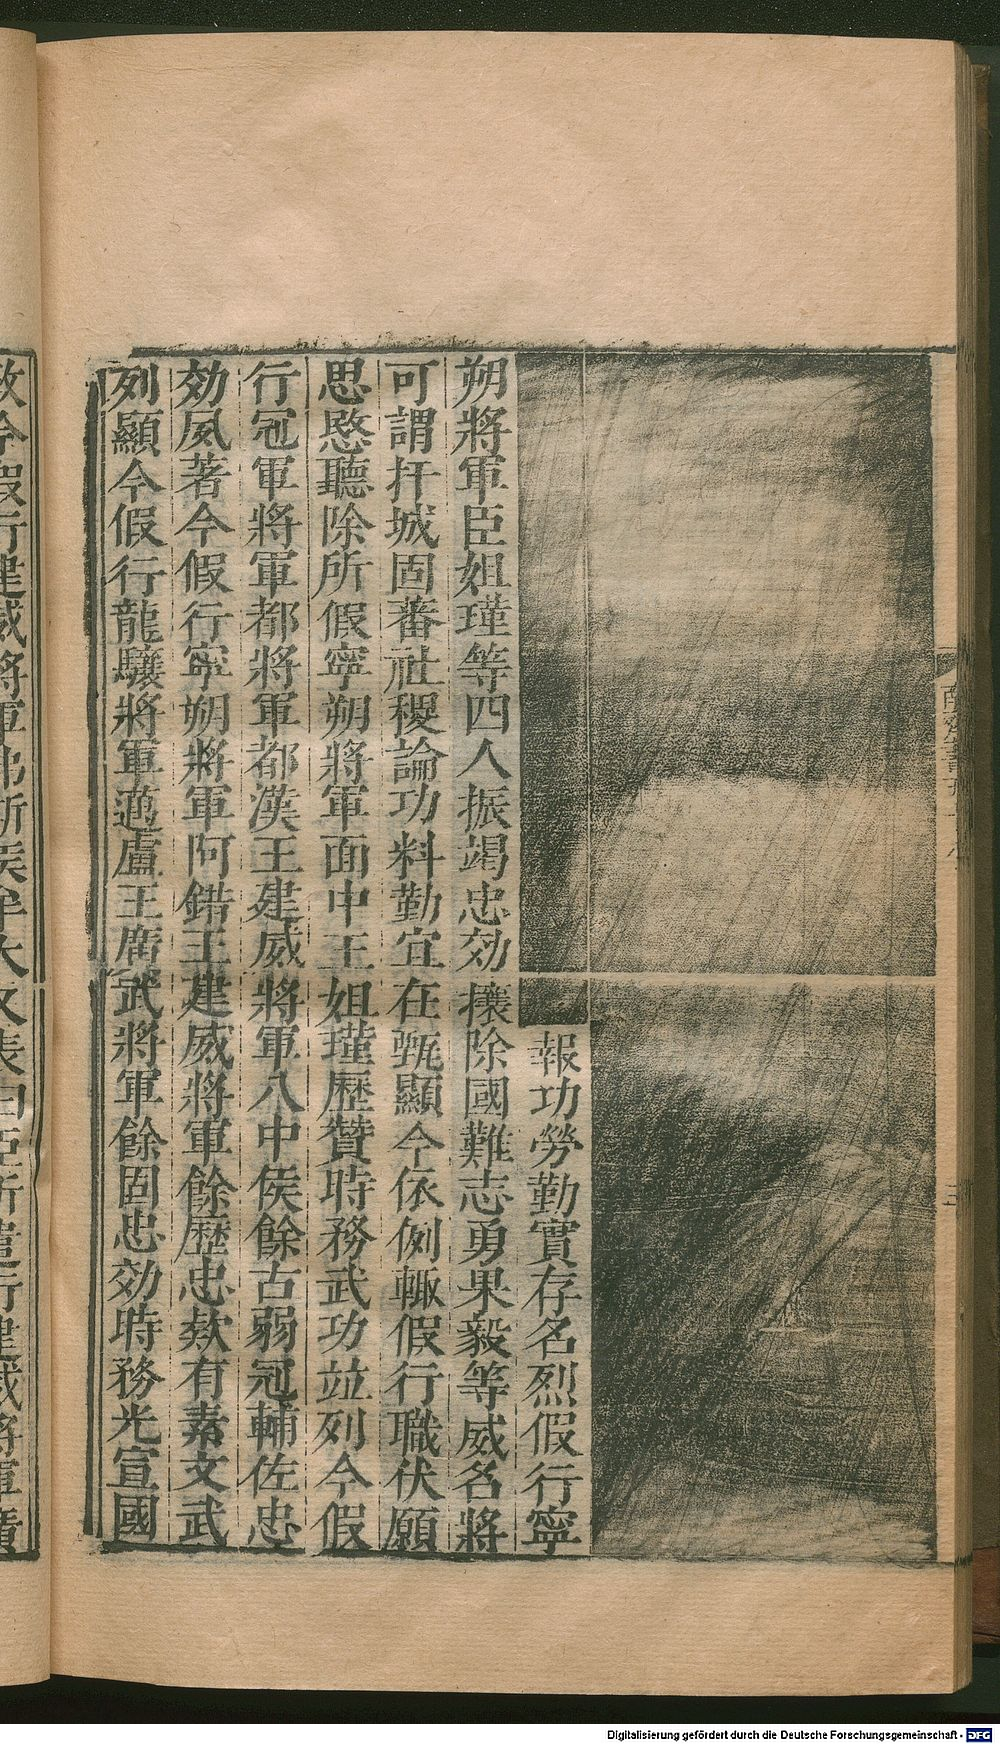 報功勞勤實存名烈假行寧
朔將軍臣姐瑾等四人振竭忠効攘除國難志勇果毅等威名將
可謂扞城固蕃社稷論功料勤宜在甄顯今依例輙假行職伏願
思愍聽除所假寧朔將軍面中王姐瑾歷贊時務武功竝列今假
行冠軍將軍都將軍都漢王建威將軍八中侯餘古弱冠輔佐忠
効夙著今假行寧朔將軍阿錯王建威將軍餘歷忠款有素文武
列顯今假行龍驤將軍邁盧王廣武將軍餘固忠効時務光宣國
政今假行建威將軍弗斯侯牟大又表曰臣所遣行建威將軍廣
Digitalisierung gefördert durch die Deutsche Forschungsgemeinschaft - DFG